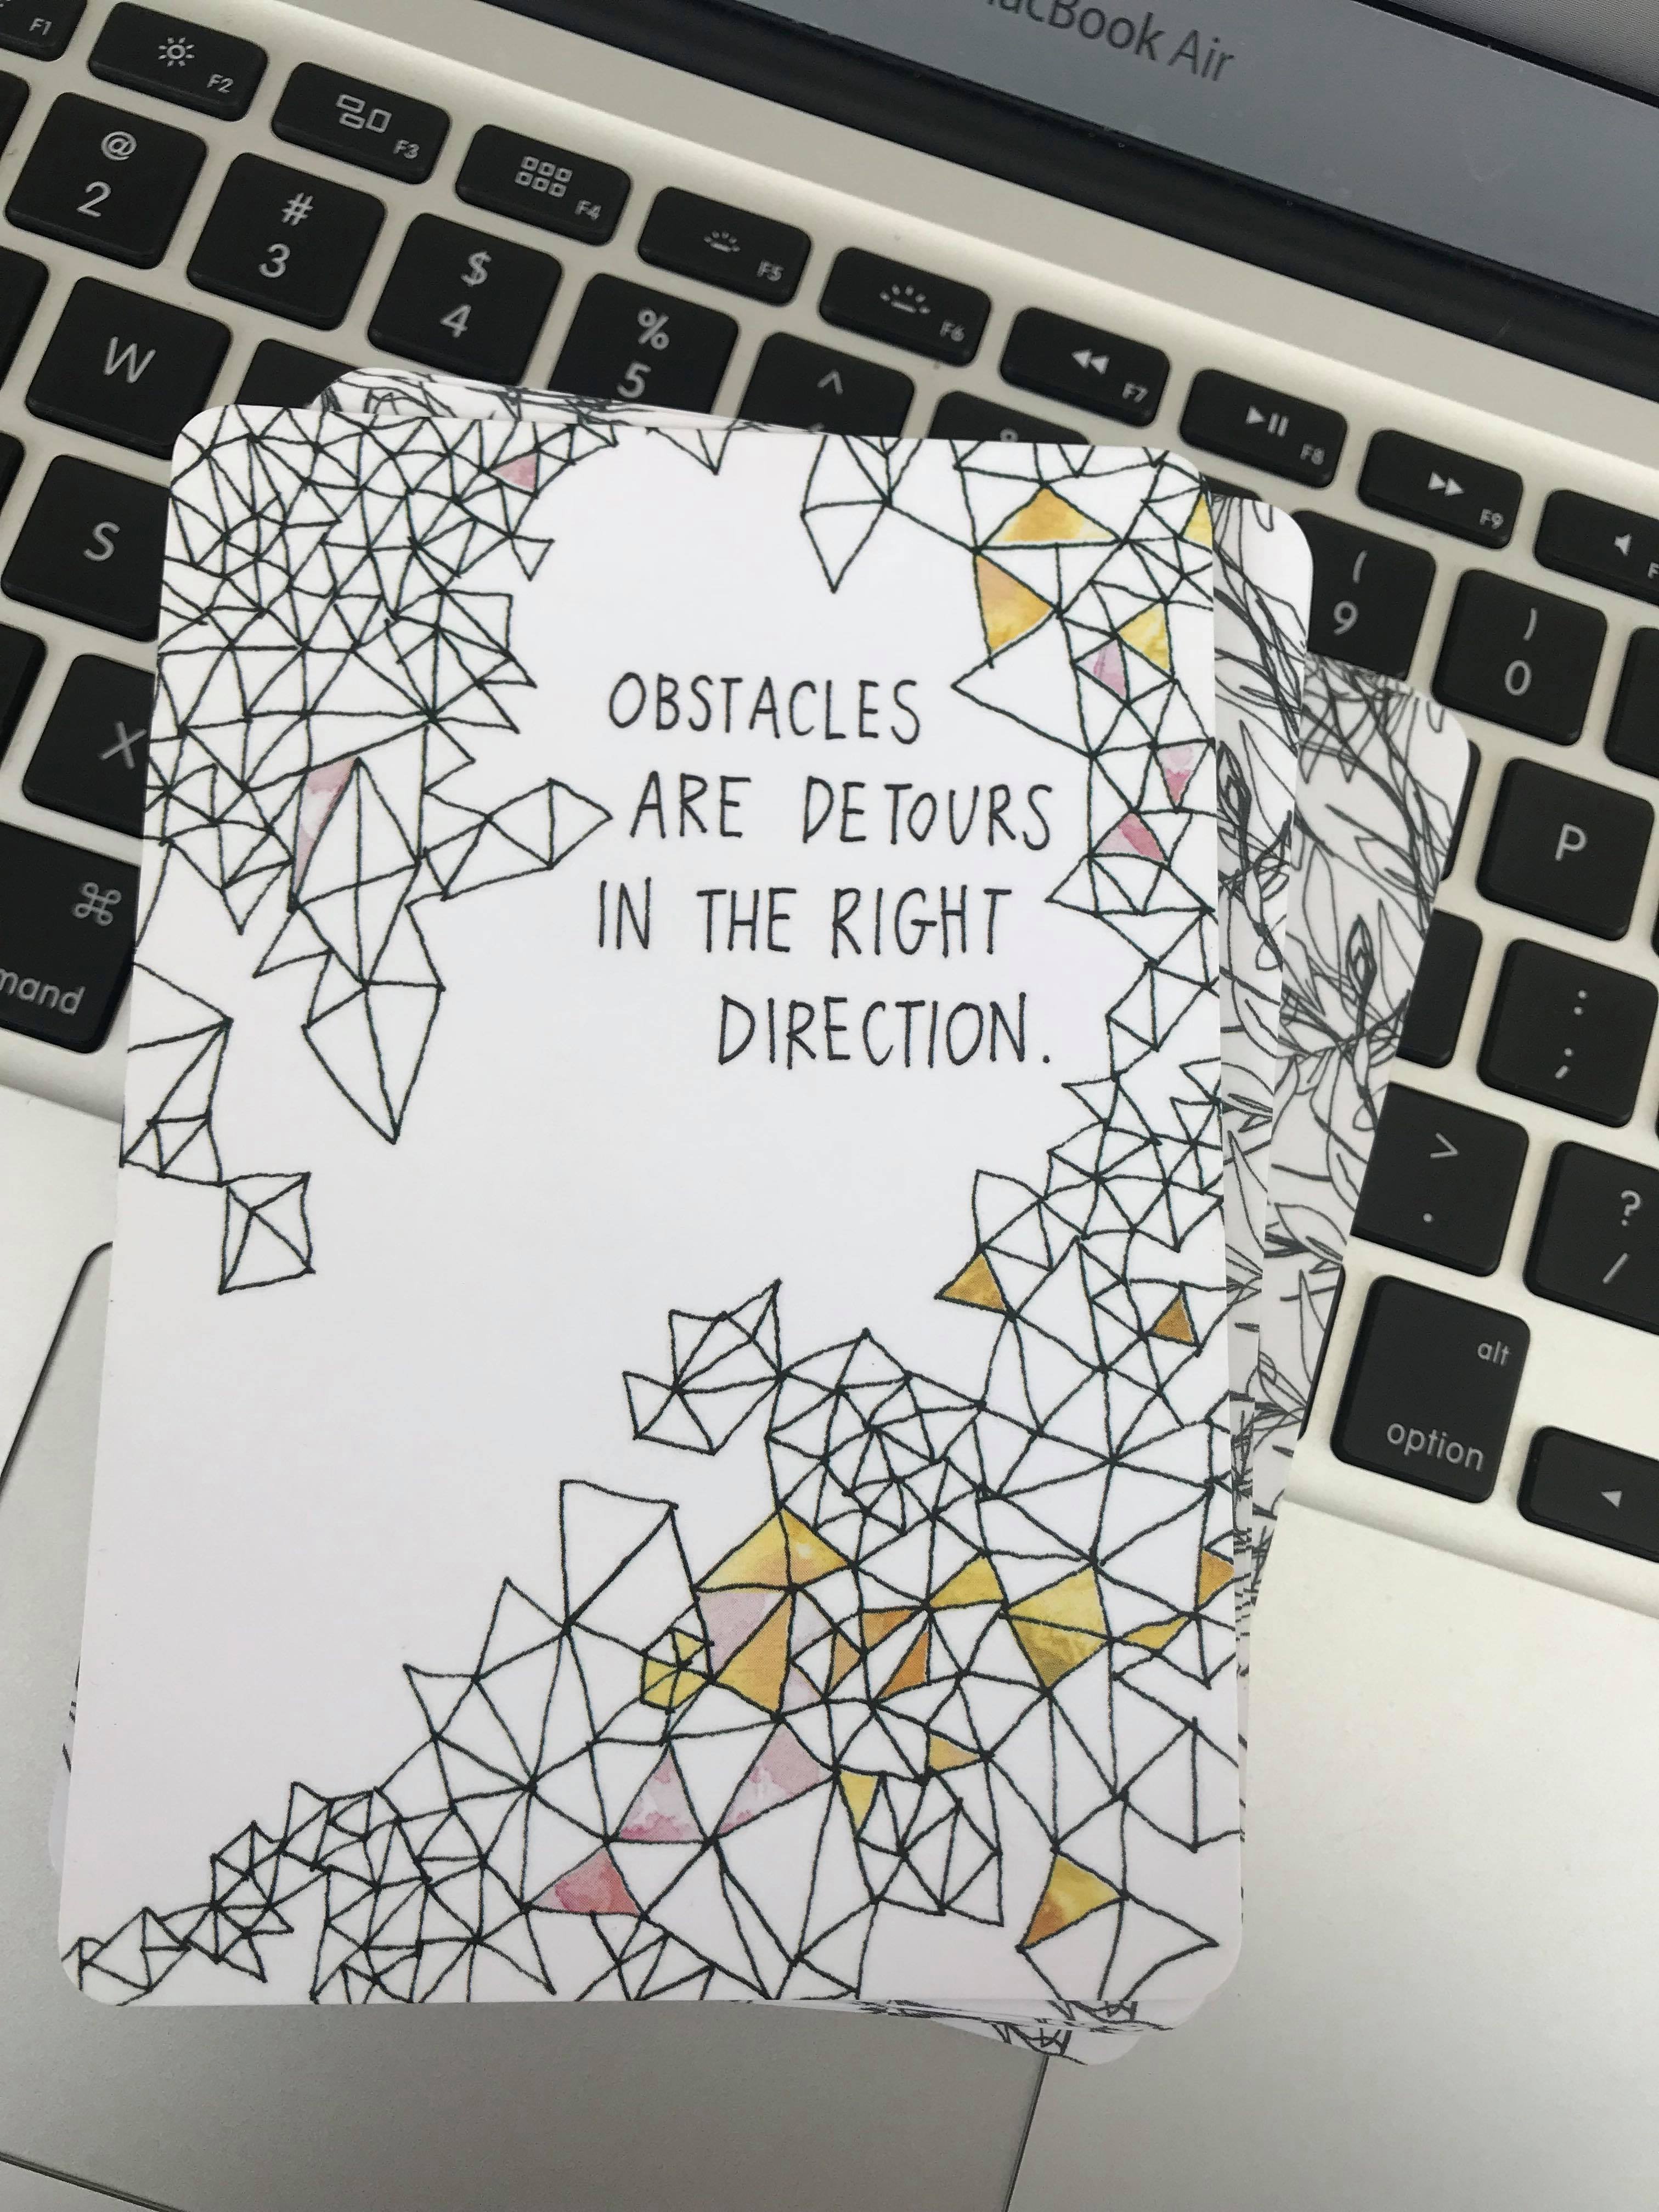 MacBook Air
F1
F2
F3
F4
F5
F6
F7
F8
F9
@
2
#
3
$
4
%
5
^
(
9
)
0
W
S
X
P
:
;
>
.
?
/
⌘
alt
option
OBSTACLES
ARE DETOURS
IN THE RIGHT
DIRECTION.